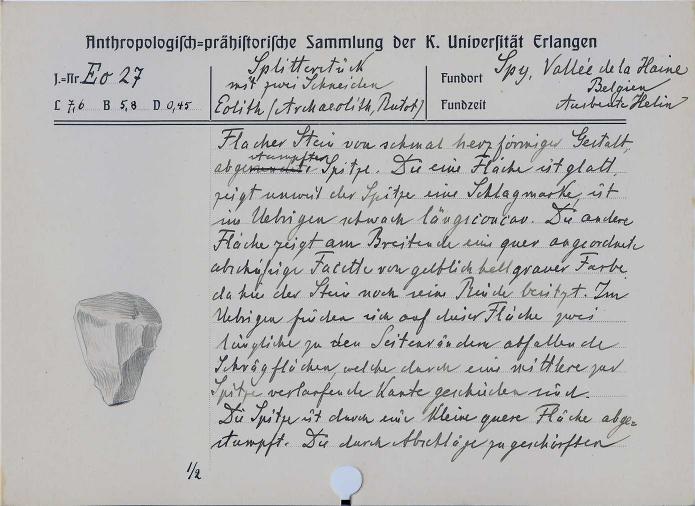 Anthropologisch=prähistorische Sammlung der K. Universität Erlangen
J.=Nr. Eo 27
L 7,6 B 5,8 D 0,45
Splitterstück
mit zwei Schneiden
Eolith (Archaeolith, Rutot)
Fundort Spy, Vallée de la Haine
Belgien
Fundzeit Ausbeute Helin
Flacher Stein von schmal herzförmiger Gestalt,
stumpfter
abge Spitze. Die eine Fläche ist glatt,
zeigt unweit der Spitze eine Schlagmarke, ist
im Uebrigen schwach längsconcav. Die andere
Fläche zeigt am Breitende eine quer angeordnete
abschüssige Facette von gelblich hellgrauer Farbe,
da hie der Stein noch seine Rinde besitzt. Im
Uebrigen finden sich auf dieser Fläche zwei
längliche zu den Seitenrändern abfallende
Schrägflächen, welche durch eine mittlere zur
Spitze verlaufende Kante geschieden sind.
Die Spitze ist durch eine kleine quere Fläche abge=
stumpft. Die durch Abschläge zugeschärften
1/2